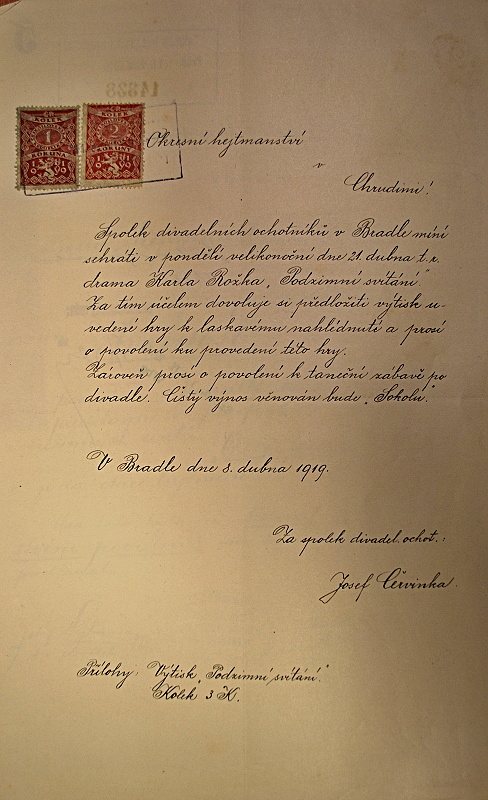 14328
KOLEK
1
KORUNA
KOLEK
2
KORUNY
Okresní hejtmanství
v
Chrudimi!
Spolek divadelních ochotníků v Bradle míní
sehráti v pondělí velikonoční dne 21. dubna t. r.
drama Karla Rožka „Podzimní svítání."
Za tím účelem dovoluje si předložiti výtisk u-
vedené hry k laskavému nahlédnutí a prosí
o povolení ku provedení této hry.
Zároveň prosí o povolení k taneční zábavě po
divadle. Čistý výnos věnován bude „Sokolu."
V Bradle dne 8. dubna 1919.
Za spolek divadel. ochot.:
Josef Červinka.
Přílohy: Výtisk „Podzimní svítání."
Kolek 3 K.